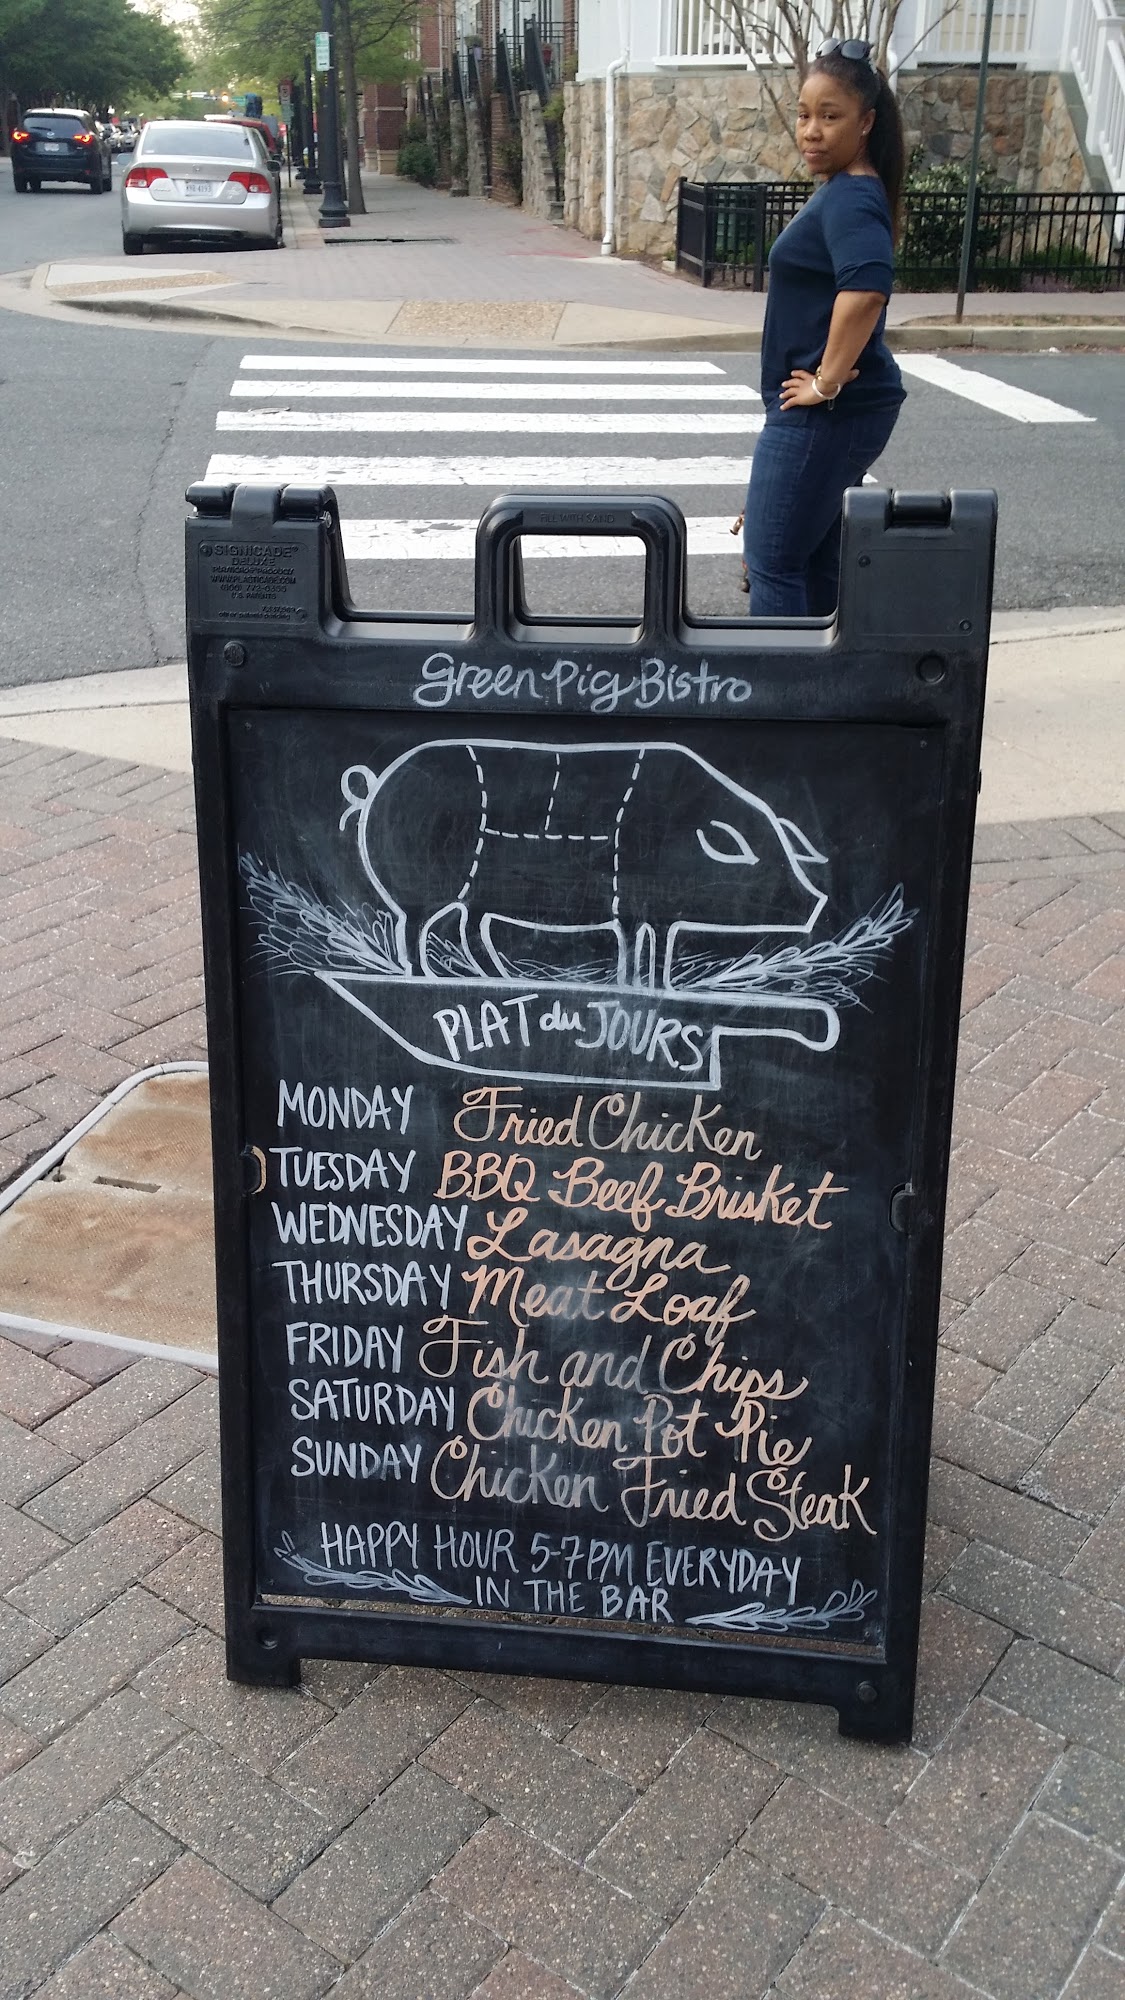 FILL WITH SAND
SIGNICADE®
DELUXE
PLASTICADE PRODUCT
WWW.PLASTICADE.COM
(800) 772-0355
U.S. PATENTS
Green Pig Bistro
PLAT du JOURS
MONDAY Fried Chicken
TUESDAY BBQ Beef Brisket
WEDNESDAY Lasagna
THURSDAY Meat Loaf
FRIDAY Fish and Chips
SATURDAY Chicken Pot Pie
SUNDAY Chicken Fried Steak
HAPPY HOUR 5-7PM EVERYDAY
IN THE BAR